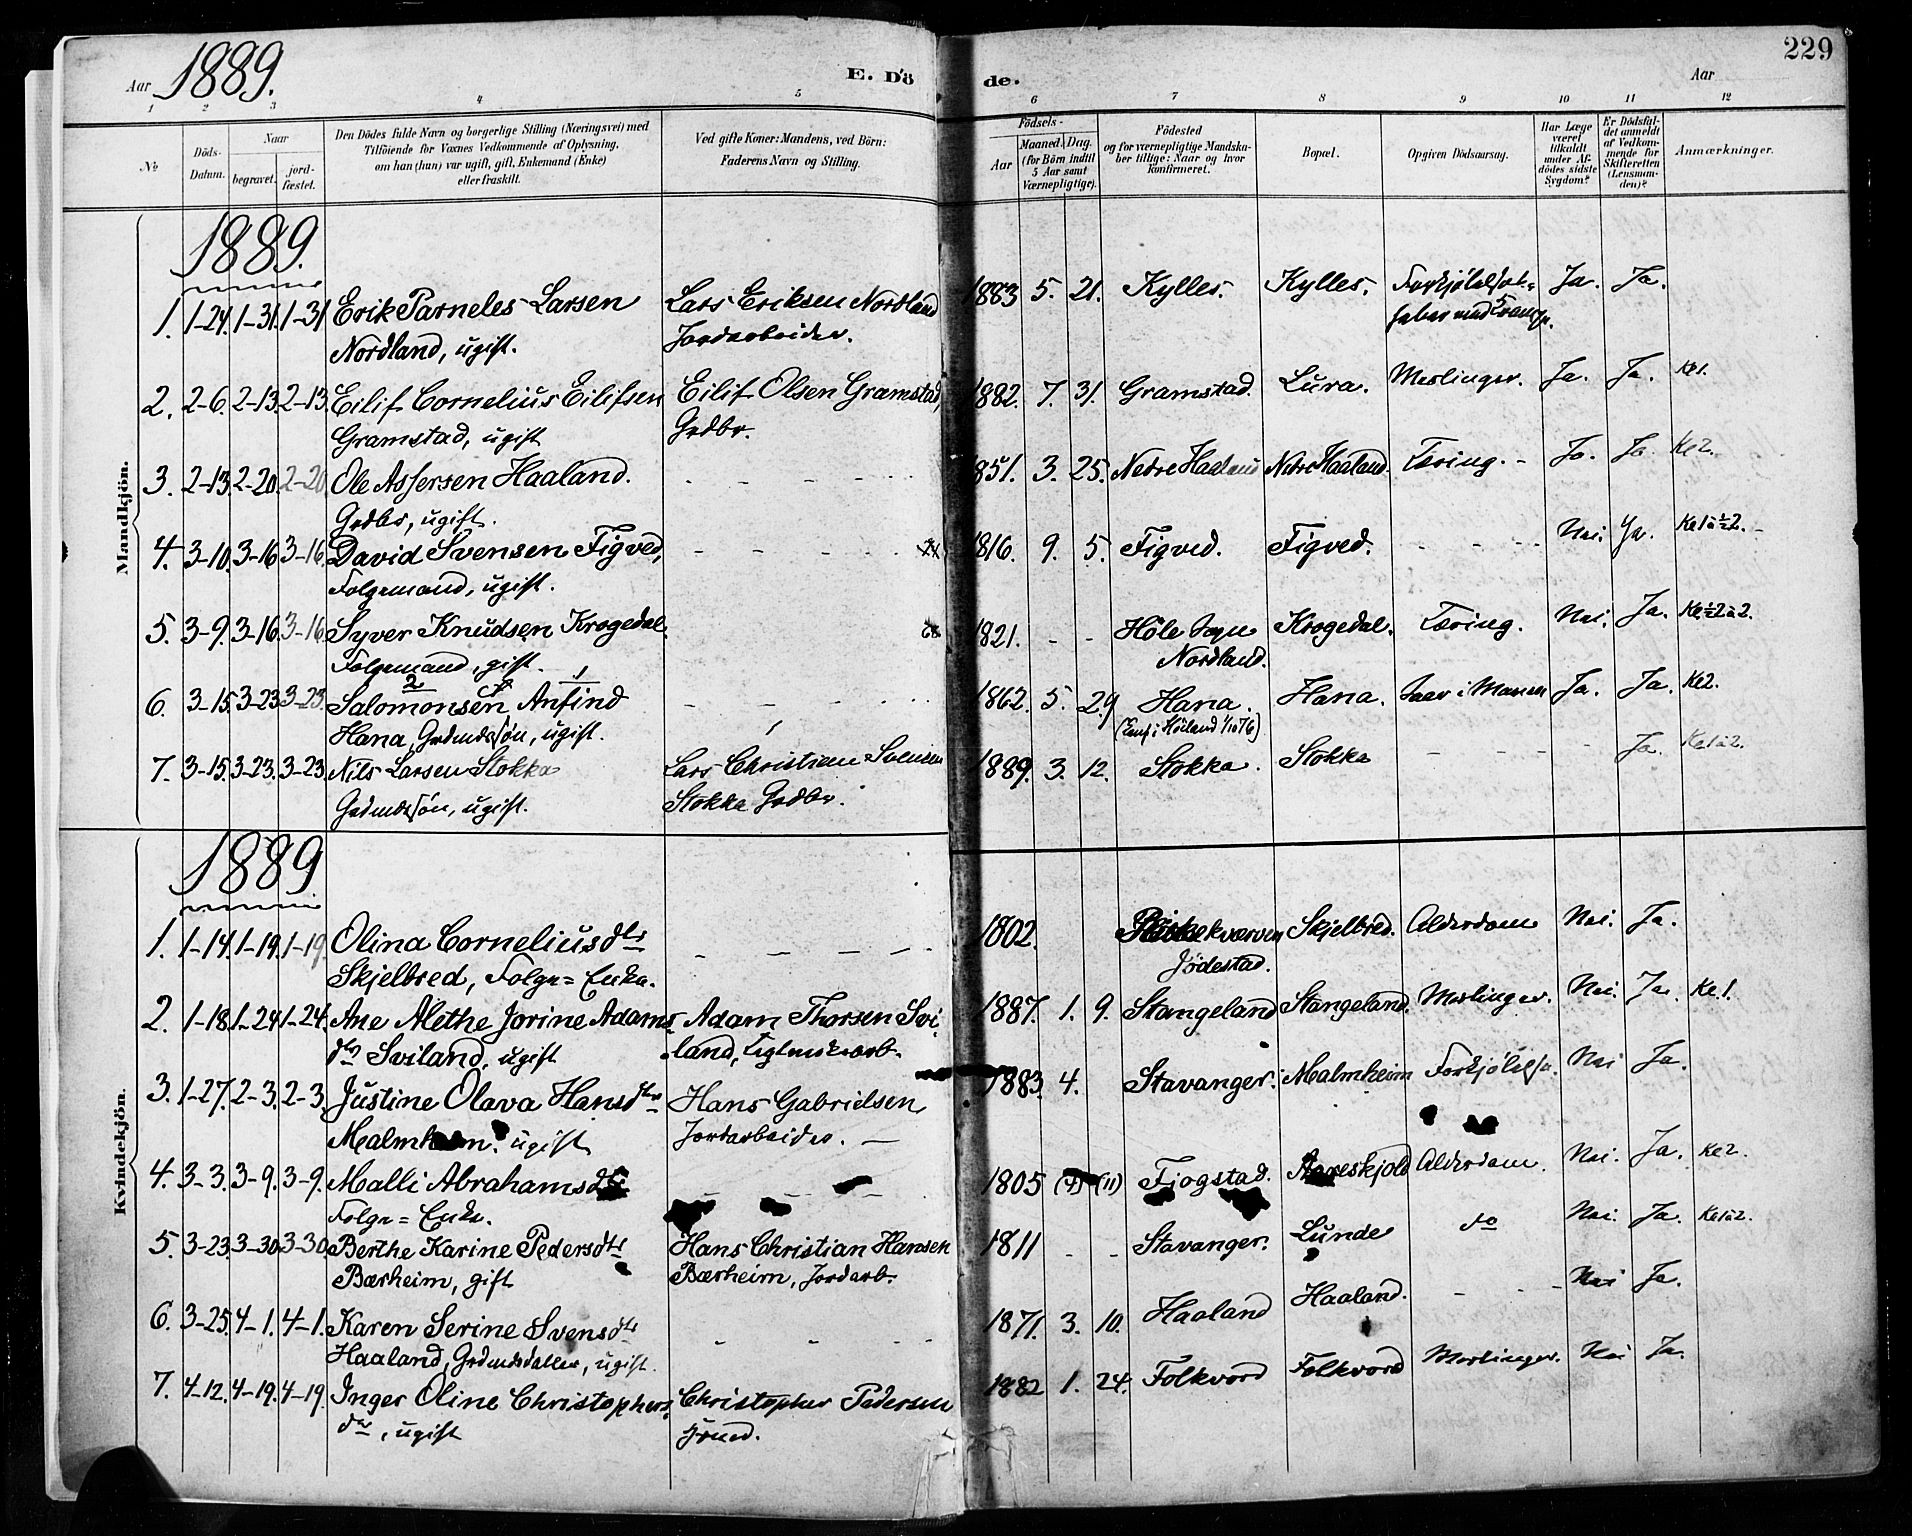 229
Aar 1889.
E. Dö de.
Aar
1 2 3 4 5 6 7 8 9 10 11 12
No
Döds-Datum.
Naar
begravet.
jord-fæstet.
Den Dödes fulde Navn og borgerlige Stilling (Næringsvei) med
Tilföiende for Voxnes Vedkommende af Oplysning,
om han (hun) var ugift, gift, Enkemand (Enke)
eller fraskilt.
Ved gifte Koner: Mandens, ved Börn:
Faderens Navn og Stilling.
Födsels-
Aar
Maaned. Dag.
(for Börn indtil
5 Aar samt
Værnepligtige).
Födested
og for værnepligtige Mandska-
ber tillige: Naar og hvor
konfirmeret.
Bopæl.
Opgiven Dödsaarsag.
Har Læge
været
tilkaldt
under Af-
dödes sidste
Sygdom?
Er Dödsfal-
det anmeldt
af Vedkom-
mende for
Skifteretten
(Lensman-
den)?
Anmærkninger.
Mandkjön.
1889.
1. 1-24. 1-31. 1-31 Erik Parneles Larsen Lars Eriksen Nordland 1883 5. 21. Kylles. Kylles. Ja. Ja.
Nordland, ugift. Jordarbeider.
2. 2-6. 2-13. 2-13. Eilif Cornelius Eilifsen Eilif Olsen Gramstad, 1882. 7. 31. Gramstad. Lura. Meslinger. Ja. Ja. Ke1.
Gramstad, ugift Grdbr.
3. 2-13. 2-20. 2-20. Ole Assersen Haaland. - - - - 1851. 3. 25. Nedre Haaland Nedre Haaland. Tæring. - Ja. Ja. Ke2.
Grdbr, ugift.
4. 3-10. 3-16 3-16. David Svensen Figved, - - - - 1816. 9. 5. Figved. Figved. - - - - Nei. Ja. Ke1à½2. -
Folgemand, ugift.
5. 3-9. 3-16. 3-16 Syver Knudsen Krogedal. 68 1821. - - Höle Sogn Krogedal. Tæring. Nei. Ja. Ke½2à2.
Folgemand, gift. Nordland.
6. 3-15. 3-23 3-23. 2 Salomonsen 1 Anfind - - - - 1862. 5. 29 Hana. Hana. Ja. Ja. Ke2.
Hana, Grdmdssøn, ugift. (Conf. i Höiland 1/10 76)
7. 3-15. 3-23. 3-23. Nils Larsen Stokka Lars Christian Svensen 1889. 3. 12. Stokka. Stokka - - - - Ja. Ke1à2.
Grdmdssøn, ugift. Stokka Grdbr.
Kvindekjön.
1889
1. 1-14. 1-19. 1-19. Olina Corneliusdtr - - - - 1802. Skjelbred. Alderdom Nei. Ja.
Skjelbred, Folge=Enke. Jödestad.
2. 1-18. 1-24. 1-24. Ane Alethe Jorine Adams- Adam Thorsen Svi 1887. 1. 9. Stangeland Stangeland. Meslinger. Nei. Ja. Ke1.
dtr Sviland, ugift land, Teglverksarb.
3. 1-27. 2-3. 2-3. Justine Olava Hansdtr Hans Gabrielsen 1883. 4. Stavanger. Malmheim Forkjølelse. Nei Ja.
Malmheim, ugift Jordarbeider. -
4. 3-3. 3-9. 3-9. Malli Abrahamsdtr 1805 (7) (11) Fjogstad. Aareskjold Alderdom. Nei. Ja. Ke2.
Folge=Enke.
5. 3-23. 3-30. 3-30. Berthe Karine Pedersdtr Hans Christian Hansen 1811 - - Stavanger. Lunde do Nei. Ja. Ke1à2.
Bærheim, gift Bærheim, Jordarb.
6. 3-25. 4-1. 4-1. Karen Serine Svensdtr - - - 1871. 3. 10. Haaland Haaland. - - - Nei Ja.
Haaland, Grdmdsdatter, ugift.
7. 4-12. 4-19. 4-19. Inger Oline Christophers- Christopher Pedersen 1882 1. 24. Folkvord Folkvord Meslinger. Nei Ja.
dtr, ugift